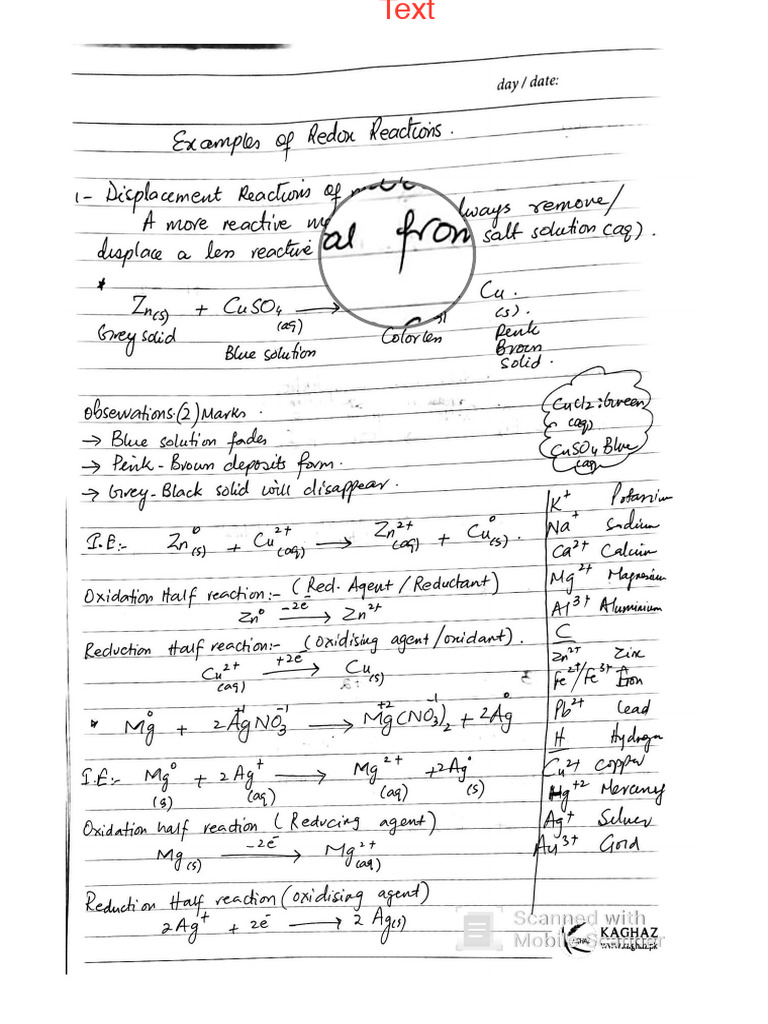 Text
day / date:
Examples of Redox Reactions.
1- Displacement Reactions of
A more reactive always remove/
displace a less reactive al from salt solution (aq).
*
Zn(s) + CuSO4 (aq) ⟶ Cu. (s).
Grey solid Blue solution Colorless Penk Brown solid.
CuCl2: Green (aq)
CuSO4 Blue (aq)
Observations: (2) Marks.
→ Blue solution fades
→ Penk - Brown deposits form.
→ Grey-Black solid will disappear.
I.E:- Zn⁰(s) + Cu²⁺(aq) ⟶ Zn²⁺(aq) + Cu⁰(s).
Oxidation Half reaction:- (Red. Agent / Reductant)
Zn⁰ -2e⁻⟶ Zn²⁺
Reduction Half reaction:- (Oxidising agent/oxidant).
Cu²⁺(aq) +2e⁻⟶ Cu(s)
* Mg⁰ + 2Ag⁺¹NO3⁻¹ ⟶ Mg⁺²(NO3)2⁻¹ + 2Ag⁰
I.E:- Mg⁰(s) + 2Ag⁺(aq) ⟶ Mg²⁺(aq) + 2Ag⁰(s)
Oxidation half reaction (Reducing agent)
Mg(s) -2e⁻⟶ Mg²⁺(aq)
Reduction Half reaction (oxidising agent)
2Ag⁺ + 2e⁻ ⟶ 2Ag(s)
K⁺ Potassium
Na⁺ Sodium
Ca²⁺ Calcium
Mg²⁺ Magnesium
Al³⁺ Aluminium
C
Zn²⁺ Zinc
Fe²⁺/Fe³⁺ Iron
Pb²⁺ Lead
H Hydrogen
Cu²⁺ Copper
Hg⁺² Mercury
Ag⁺ Silver
Au³⁺ Gold
Scanned with
Mobile Scanner
KAGHAZ
www.kaghaz.pk